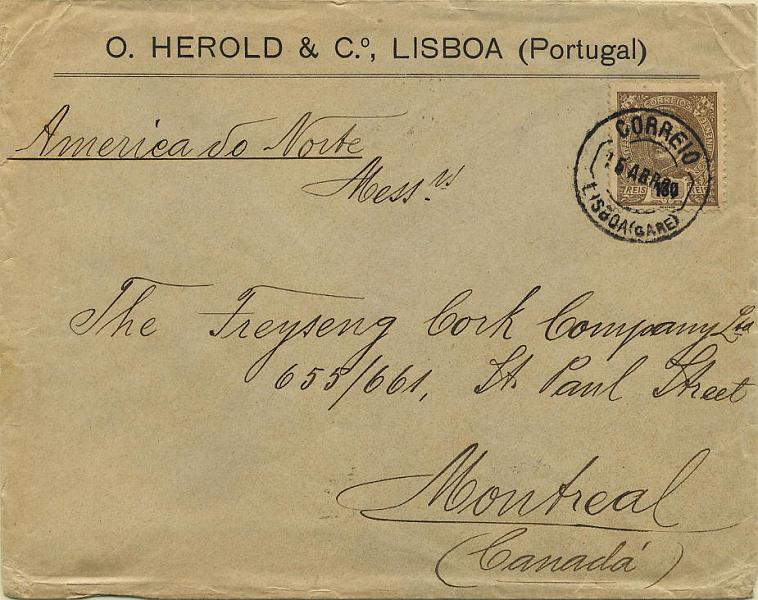 O. HEROLD & C.º, LISBOA (Portugal)
America do Norte
CORREIOS
CORREIO
LISBOA (GARE)
REIS
Mess.rs
The Freyseng Cork Company Ltd
655/661, St. Paul Street
Montreal
(Canadá)